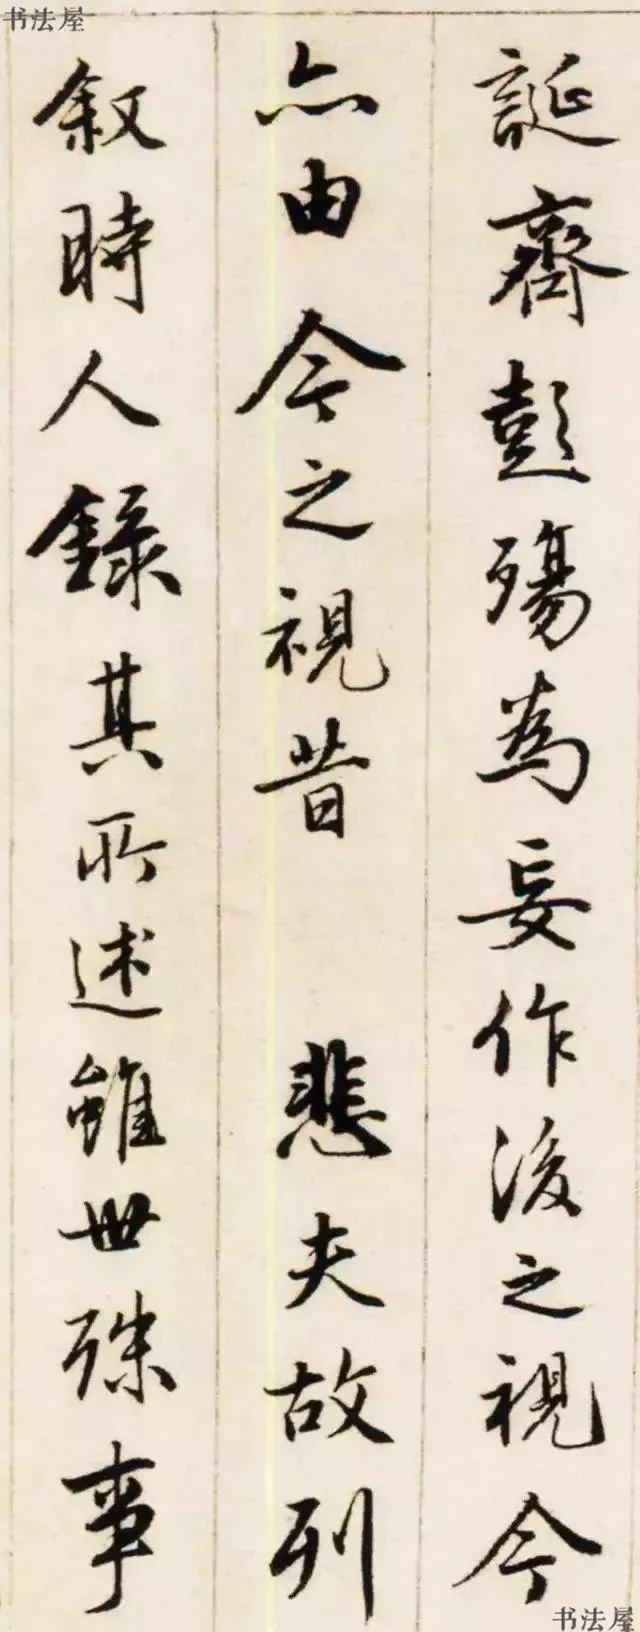 书法屋
誕齊彭殤為妄作後之視今
亦由今之視昔 悲夫故列
叙時人録其所述雖世殊事
书法屋